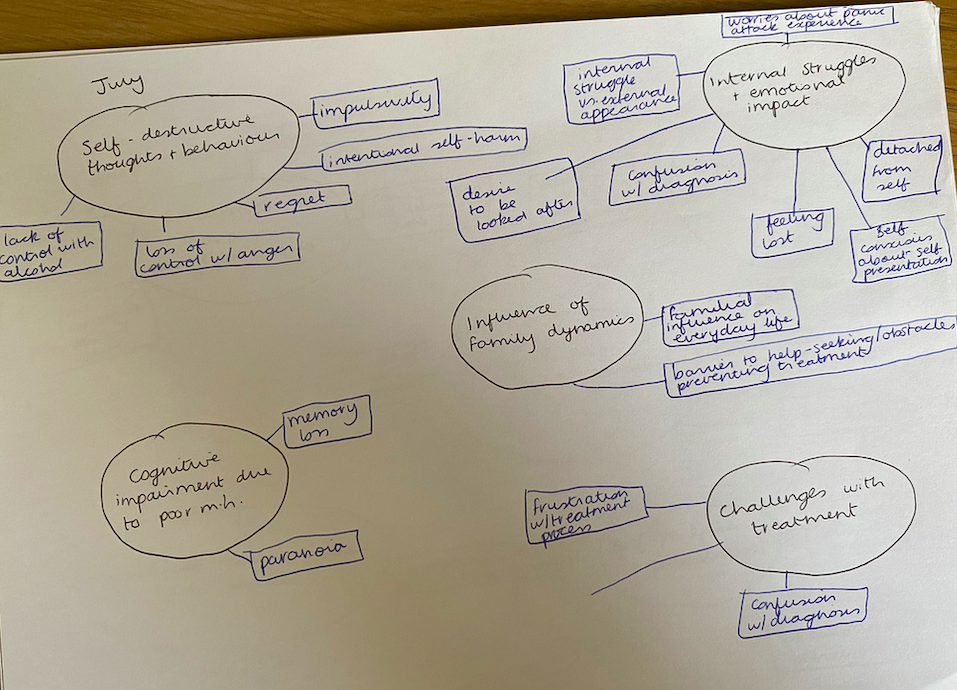 July
Self-destructive
thoughts + behaviour
impulsivity
intentional self-harm
regret
loss of
control w/ anger
lack of
control with
alcohol
worries about panic
attack experience
Internal Struggles
+ emotional
impact
internal
struggle
vs. external
appearance
desire
to be
looked after
confusion
w/ diagnosis
feeling
lost
self
conscious
about self
presentation
detached
from
self
Influence of
family dynamics
familial
influence on
everyday life
barrier to help-seeking/obstacles
preventing treatment
Cognitive
impairment due
to poor m.h.
memory
loss
paranoia
Challenges with
treatment
frustration
w/ treatment
process
confusion
w/ diagnosis